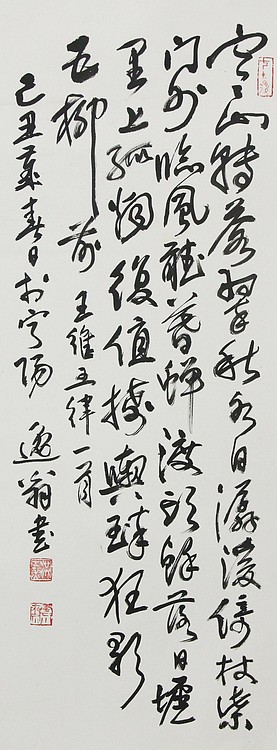 寒山转苍翠秋水日潺湲倚杖柴
门外临风听暮蝉渡头余落日墟
里上孤烟复值接舆醉狂歌
五柳前 王维五律一首
己丑年春日于宁阳 逸翁书